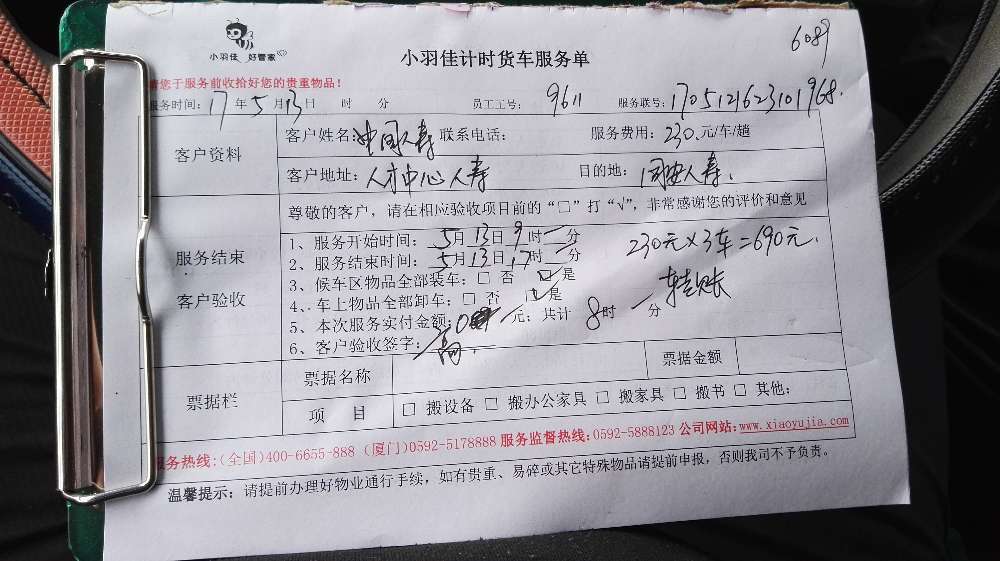 小羽佳 好管家
小羽佳计时货车服务单
6089
请您于服务前收拾好您的贵重物品！
服务时间：17年5月13日 时 分 员工工号：9611 服务联号：170512162310 1968.
客户资料
客户姓名：中国人寿 联系电话： 服务费用：230.元/车/趟
客户地址：人才中心人寿 目的地：同安人寿.
服务结束
客户验收
尊敬的客户，请在相应验收项目前的“□”打“√”，非常感谢您的评价和意见
1、服务开始时间：5月13日9时一分
2、服务结束时间：5月13日17时一分
230元×3车=690元.
3、候车区物品全部装车：□ 否 ☑是
4、车上物品全部卸车：□ 否 ☑是
转账
5、本次服务实付金额：0元；共计 8时一分
6、客户验收签字：
票据栏
票据名称 票据金额
项 目 □ 搬设备 □ 搬办公家具 □ 搬家具 □ 搬书 □ 其他：
服务热线:(全国)400-6655-888 (厦门)0592-5178888 服务监督热线:0592-5888123 公司网站:www.xiaoyujia.com
温馨提示：请提前办理好物业通行手续，如有贵重、易碎或其它特殊物品请提前申报，否则我司不予负责。